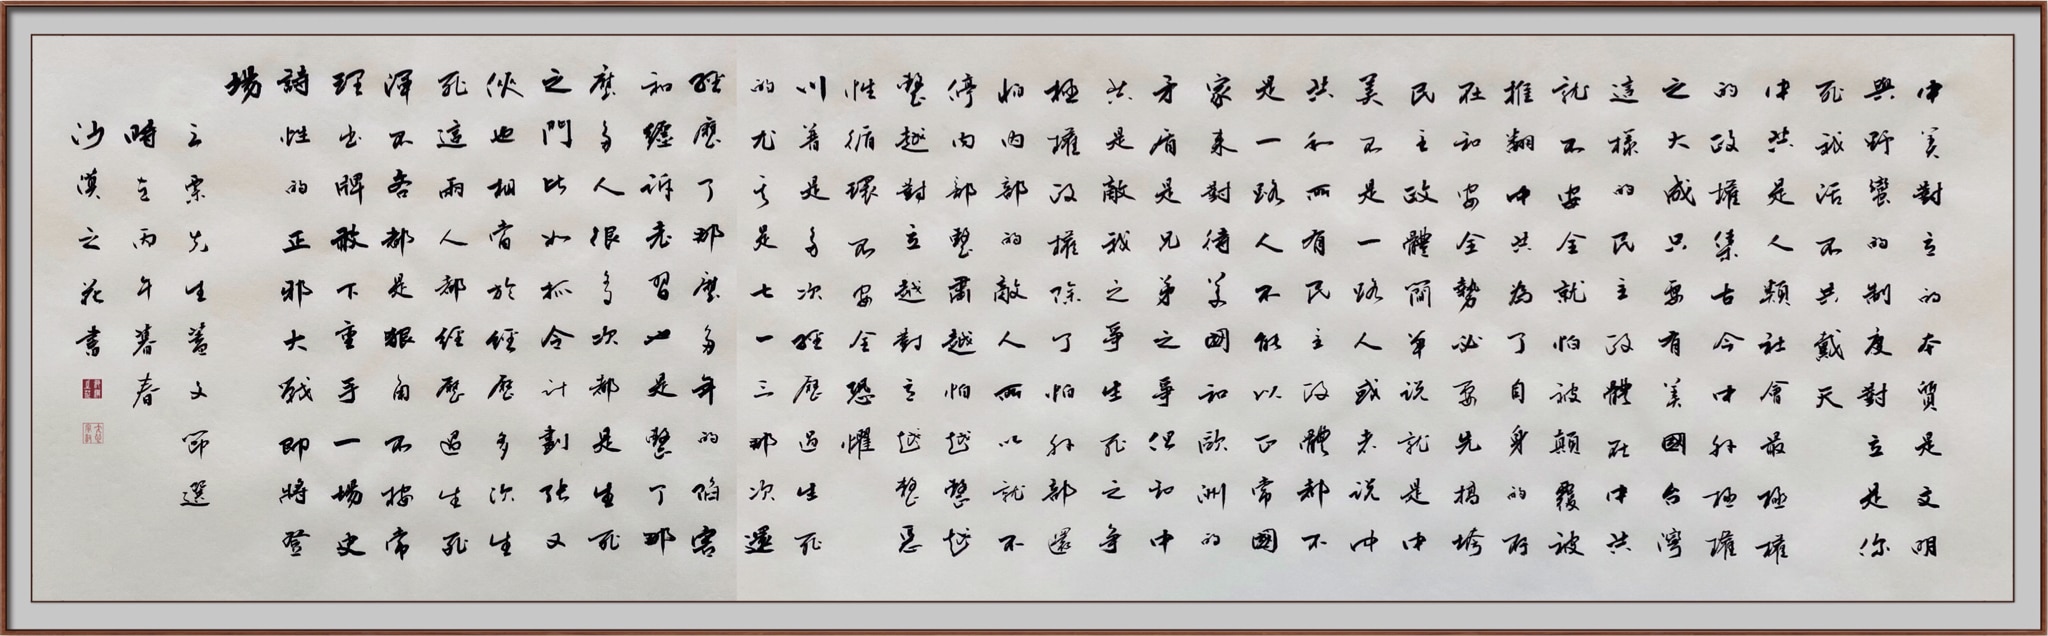 中美對立的本質是文明
與野蠻的制度對立是你
死我活不共戴天
中共是人類社會最極權
的政權集古今中外極權
之大成只要有美國台灣
這樣的民主政體在中共
就不安全就怕被顛覆被
推翻中共為了自身的所
在和安全勢必要先搞垮
民主政體簡單说就是中
美不是一路人或者说中
共和所有民主政體都不
是一路人不能以正常國
家来對待美國和歐洲的
矛盾是兄弟之爭但和中
共是敵我之爭生死之爭
極權政權除了怕外部還
怕內部的敵人所以就不
停內部整肅越怕越整越
整越對立越對立越整惡
性循環不安全恐懼
川普是多次經歷過生死
的尤其是七一三那次還
經歷了那麼多年的陷害
和纏訴老習也是整了那
麼多人很多次都是生死
之門比如孤令计劃張又
俠也相當於經歷多次生
死這兩人都經歷過生死
渾不吝都是狠角不按常
理出牌敢下重手一場史
詩性的正邪大戰即將登
場
立栗先生蓋文節選
時在丙午暮春
沙漠之花書